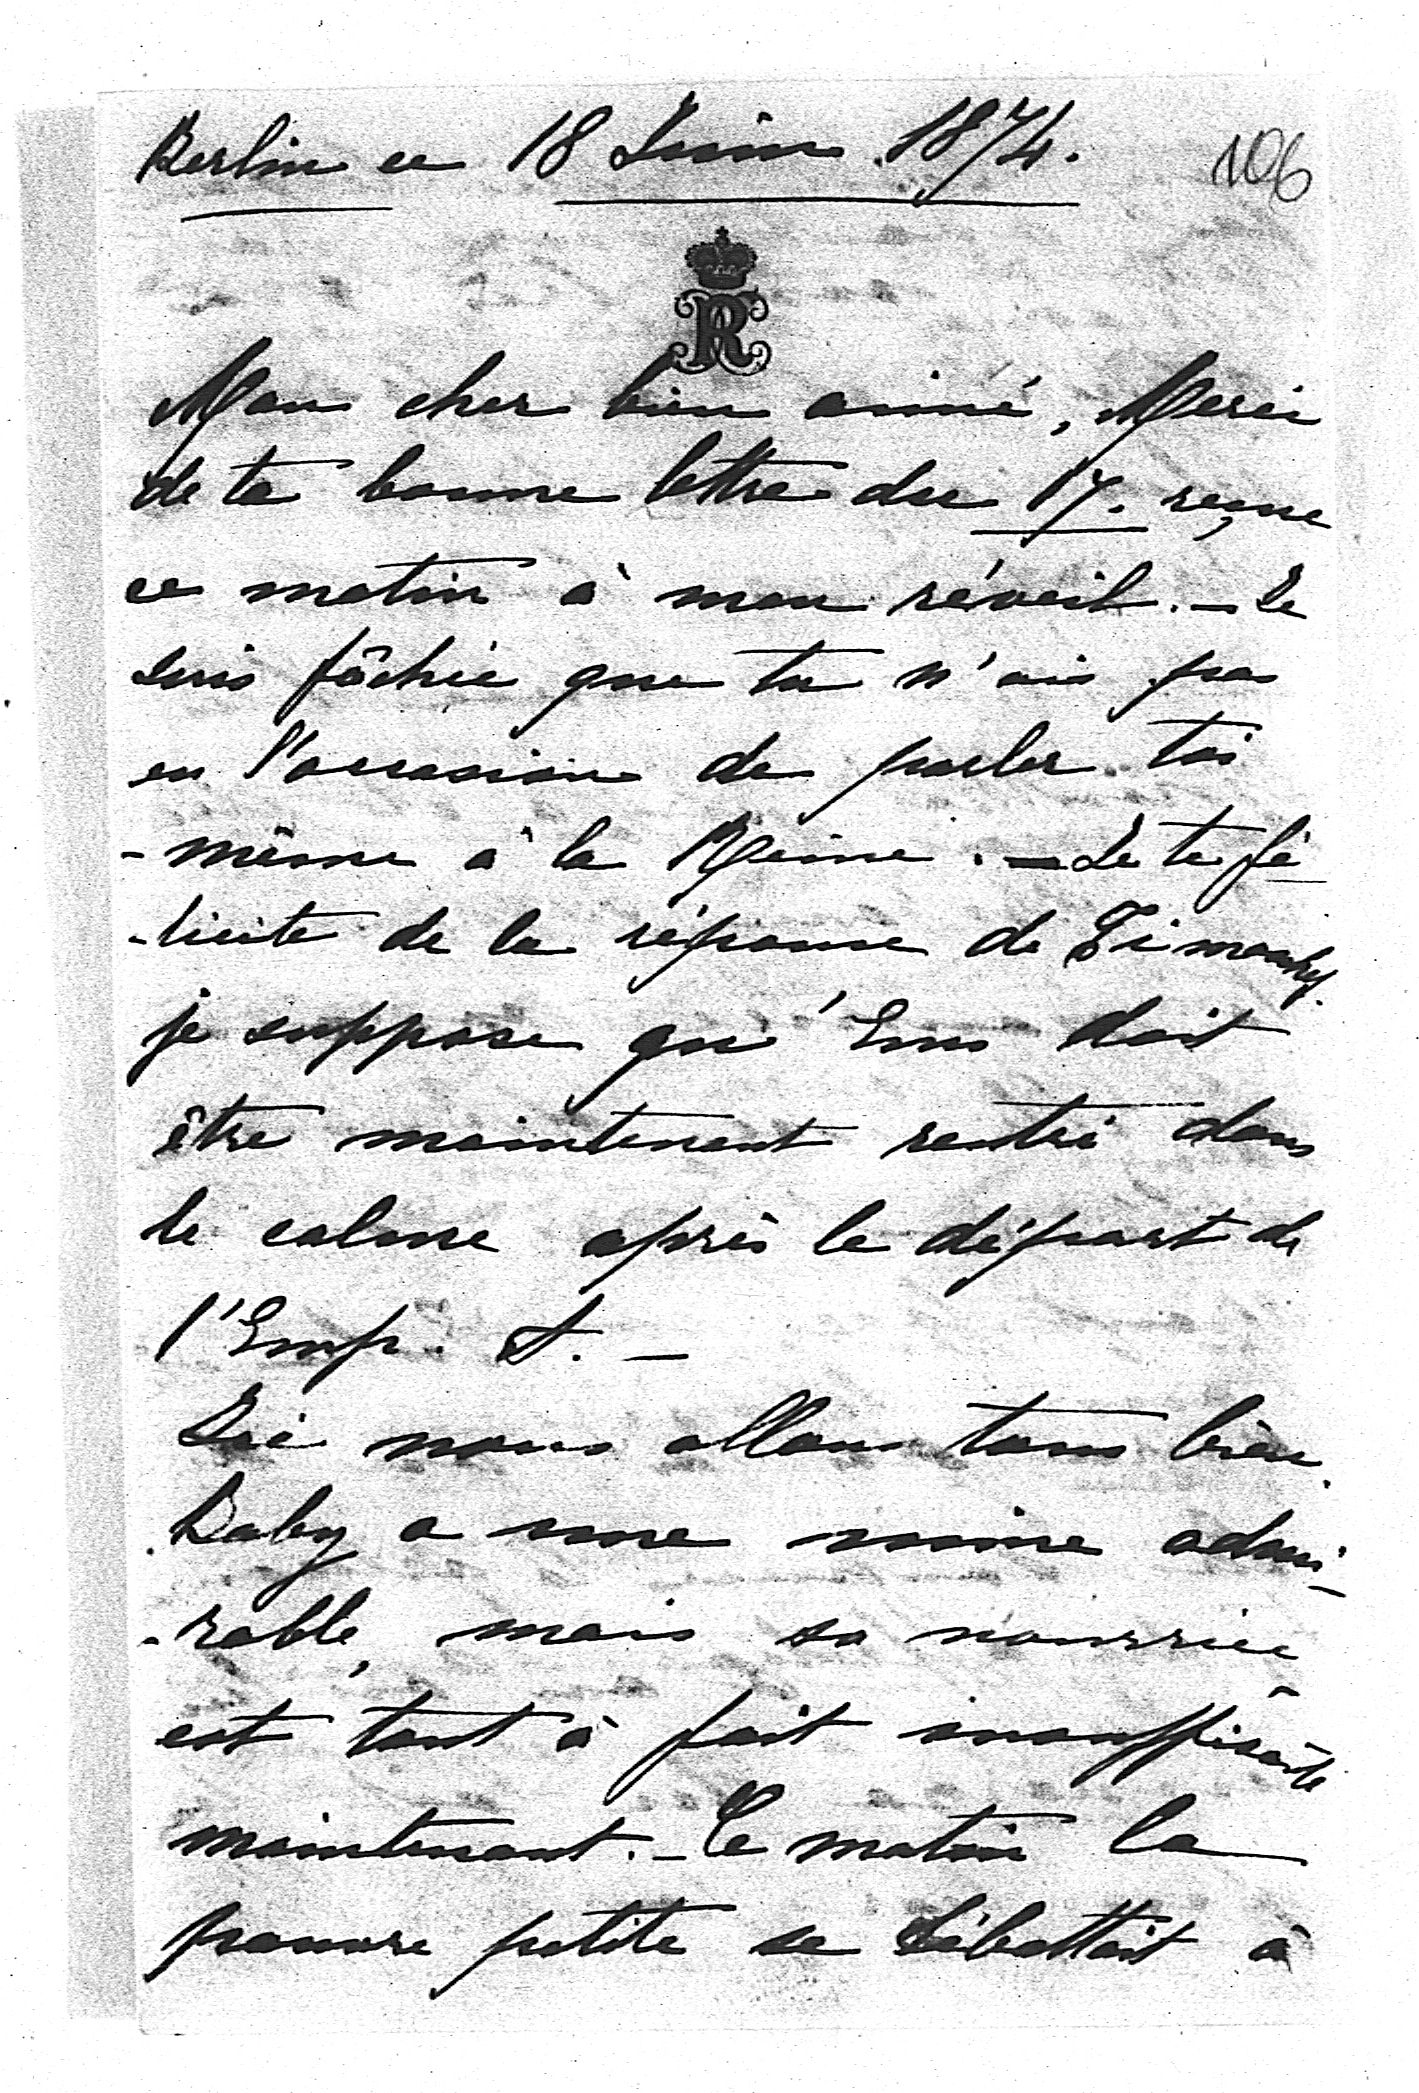 Berlin ce 18 Juin 1874.
106
R
Mon cher bien aimé, Merci
de ta bonne lettre du 17. reçue
ce matin à mon réveil. — Je
suis fâchée que tu n'ais pas
eu l'occasion de parler toi
-même à la Reine. — Je te fé
-licite de la réponse de
je suppose qu'Ems doit
être maintenant rentré dans
le calme après le départ de
l'Emp. A. —
Ici nous allons tous bien.
Baby a une mine admi-
-rable, mais sa nourrice
est tout à fait insuffisante
maintenant. — Ce matin la
pauvre petite se débattait à